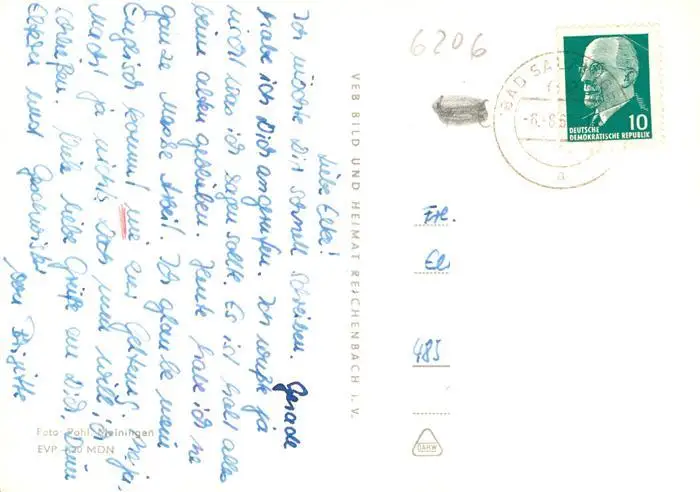 Liebe Elke!
Ich möchte Dir schnell schreiben. Gerade
habe ich Dich angerufen. Ich wußte ja
nicht was ich sagen sollte. Es ist halt alles
beim alten geblieben. Heute habe ich ne
ganze Masse Arbeit. Ich glaube mein
Englisch kommt nie zur Geltung. Naja,
macht ja nichts. Doch nun will ich
schließen. Viele liebe Grüße an Dich, Deine
Eltern und Geschwister
von Brigitte
Foto: Pohl, Meiningen
EVP 0,20 MDN
VEB BILD UND HEIMAT REICHENBACH i. V.
6206
BAD SAL
-8.-8.6
a
10
DEUTSCHE
DEMOKRATISCHE REPUBLIK
Frl.
485
DAHW